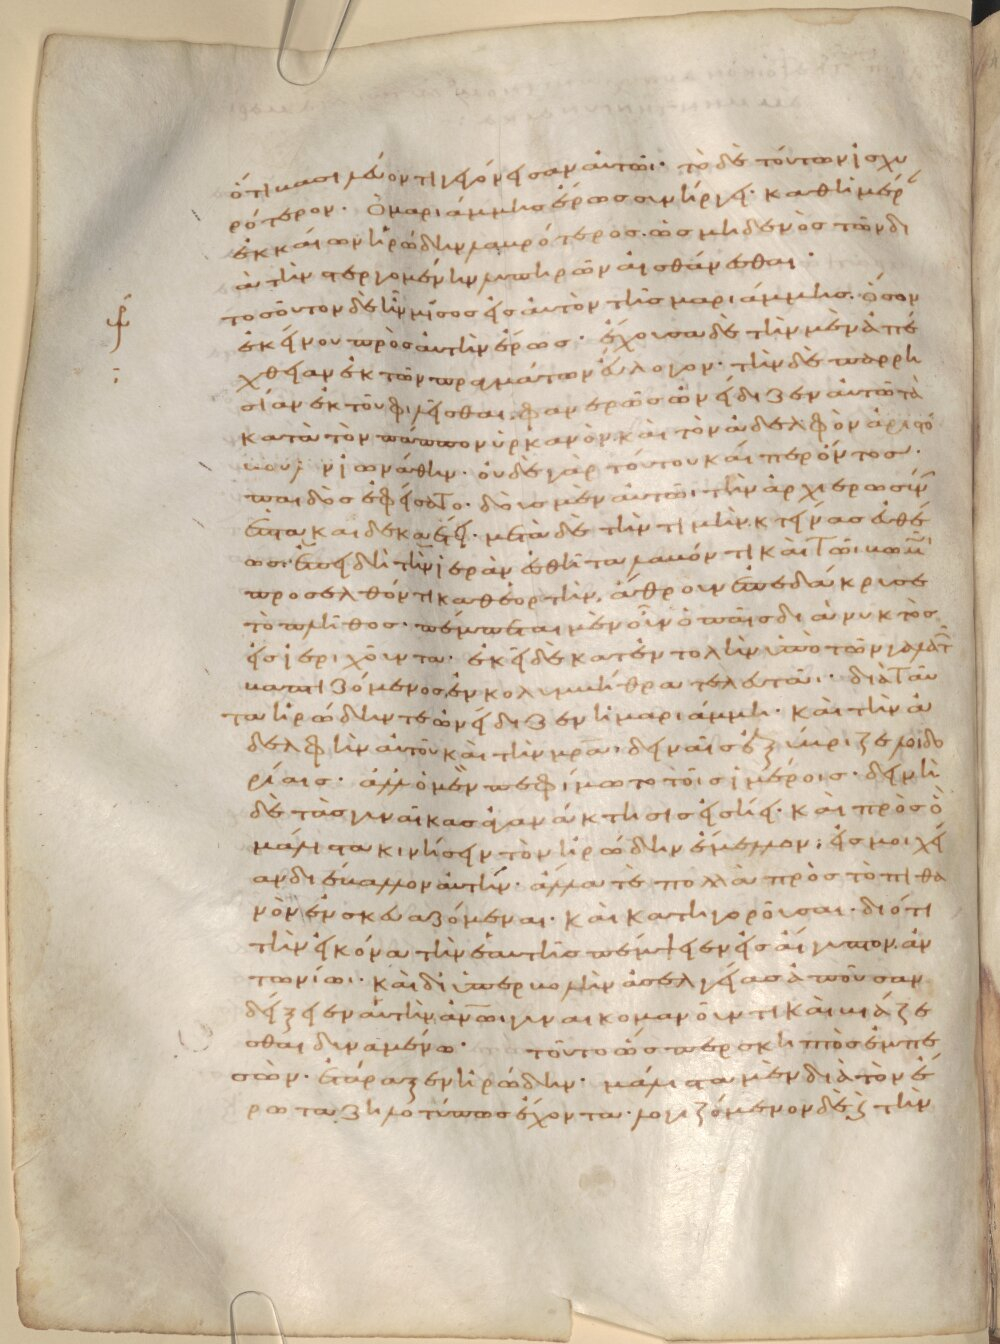 ὅτι βασιλεύοντι γεγόνεσαν αὐτῶι· τὸ δὲ τούτων ἰσχυ
ρότερον· ὁ μαριάμμης ἔρως συνήργει· καθ' ἡμέρ
ἐκκαίων ἡρώδην λαυρότερος· ὡς μηδενὸς τῶν δι
ὰ τὴν στεργομένην λυπηρῶν αἰσθάνεσθαι·
τοσοῦτον δὲ ἦν μῖσος εἰς αὐτὸν τῆς μαριάμμης· ὅσον
ἐκείνου πρὸς αὐτὴν ἔρως· ἔχουσα δὲ τὴν μὲν ἀπέ
χθειαν ἐκ τῶν πραγμάτων εὔλογον· τὴν δὲ παρρη
σίαν ἐκ τοῦ φιλεῖσθαι· φανερῶς ὠνείδιζεν αὐτῶ τὰ
κατὰ τὸν πάππον ὑρκανὸν καὶ τὸν ἀδελφὸν ἀριστό
βουλον ἰωνάθην· οὐδὲ γὰρ τούτου καίπερ ὄντος·
παιδὸς ἐφείσατο· δοὺς μὲν αὐτῶι τὴν ἀρχιερωσύν
ἑπτακαιδεκαέτει· μετὰ δὲ τὴν τιμὴν κτείνας εὐθέ
ως· ἐπειδὴ τὴν ἱερὰν ἐσθῆτα λαβόντι καὶ τῶι βωμῶ
προσελθόντι καθ' ἑορτὴν, ἄθρουν ἐπεδάκρυσε
τὸ πλῆθος· πέμπεται μὲν οὖν ὁ παῖς διὰ νυκτὸς
εἰς ἱεριχοῦντα· ἐκεῖ δὲ κατ' ἐντολὴν ὑπὸ τῶν γαλατ
βαπτιζόμενος ἐν κολυμβήθρα τελευτᾶι· διὰ ταῦ
τα ἡρώδην τε ὠνείδιζεν ἡ μαριάμμη· καὶ τὴν ἀ
δελφὴν αὐτοῦ καὶ τὴν μρα· δειναῖς ἐξύβριζε λοιδο
ρίαις· ἀλλ' ὁ μὲν πεφίμωτο τοῖς ἱμέροις· δεινὴ
δὲ τὰς γυναῖκας ἀγανάκτησις εἰσήει· καὶ πρὸς ὃ
μάλιστα κινήσειν τὸν ἡρώδην ἔμελλον· εἰς μοιχεί
αν διέβαλλον αὐτήν· ἄλλα τε πολλὰ πρὸς τὸ πιθα
νὸν ἐνσκευαζόμεναι· καὶ κατηγοροῦσαι· διότι
τὴν εἰκόνα τὴν ἑαυτῆς πέμψειεν εἰς αἴγυπτον ἀν
τωνίωι· καὶ δι' ὑπερβολὴν ἀσελγείας ἀποῦσαν
δείξειεν αὑτὴν ἀνωι γυναικομανοῦντι καὶ βιάζε
σθαι δυναμένω· τοῦτο ὥσπερ σκηπτὸς ἐμπε
σὼν· ἐτάραξεν ἡρώδην· μάλιστα μὲν διὰ τὸν ἔ
ρωτα ζηλοτύπως ἔχοντα· λογιζόμενον δὲ τὴν